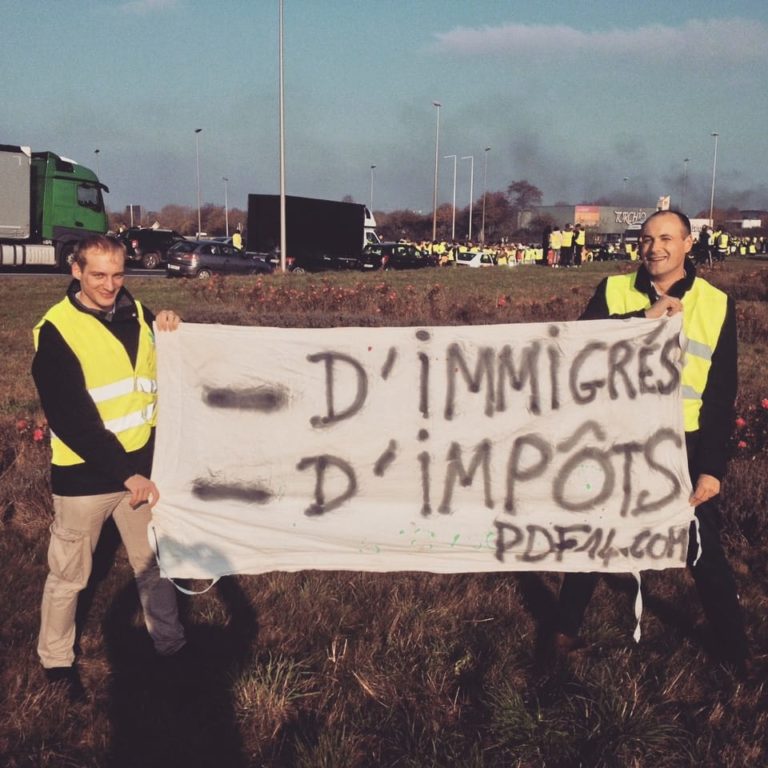 TURCHIO
- D'iMMiGRÉS
- D'iMPÔTS
PDF14.COM